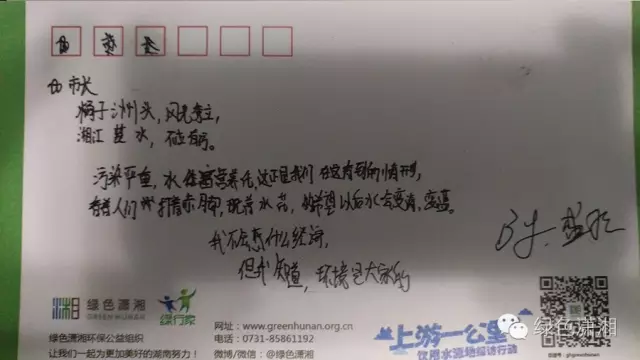 市长
橘子洲头，风光秀立，
湘江其水，
污染严重，水体富营养化，这正是我们在这看到的情形，
看着人们打着赤膊，玩着水，希望以后水会变清，变蓝。
我不会想什么经济，
但我知道，环境是大家的
绿色潇湘
GREEN HUNAN
绿行家
绿色潇湘环保公益组织
让我们一起为更加美好的湖南努力！
网址：www.greenhunan.org.cn
电话：0731-85861192
微博/微信：@绿色潇湘
上游一公里
饮用水源地探访行动
绿色潇湘